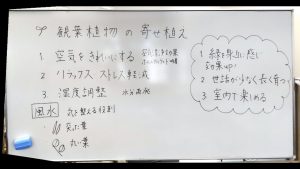 観葉植物の寄せ植え
1 空気をきれいにする
2 リラックス ストレス軽減
3 湿度調整 水分蒸散
風水 気を整える役割
尖った葉
丸い葉
1 緑を身近に感じ
効果up!
2 世話が少なく長く育つ
3 室内で楽しめる